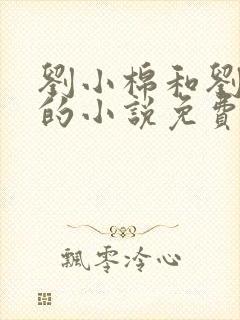 劉小棉和劉
的小說免費
飄零冷心